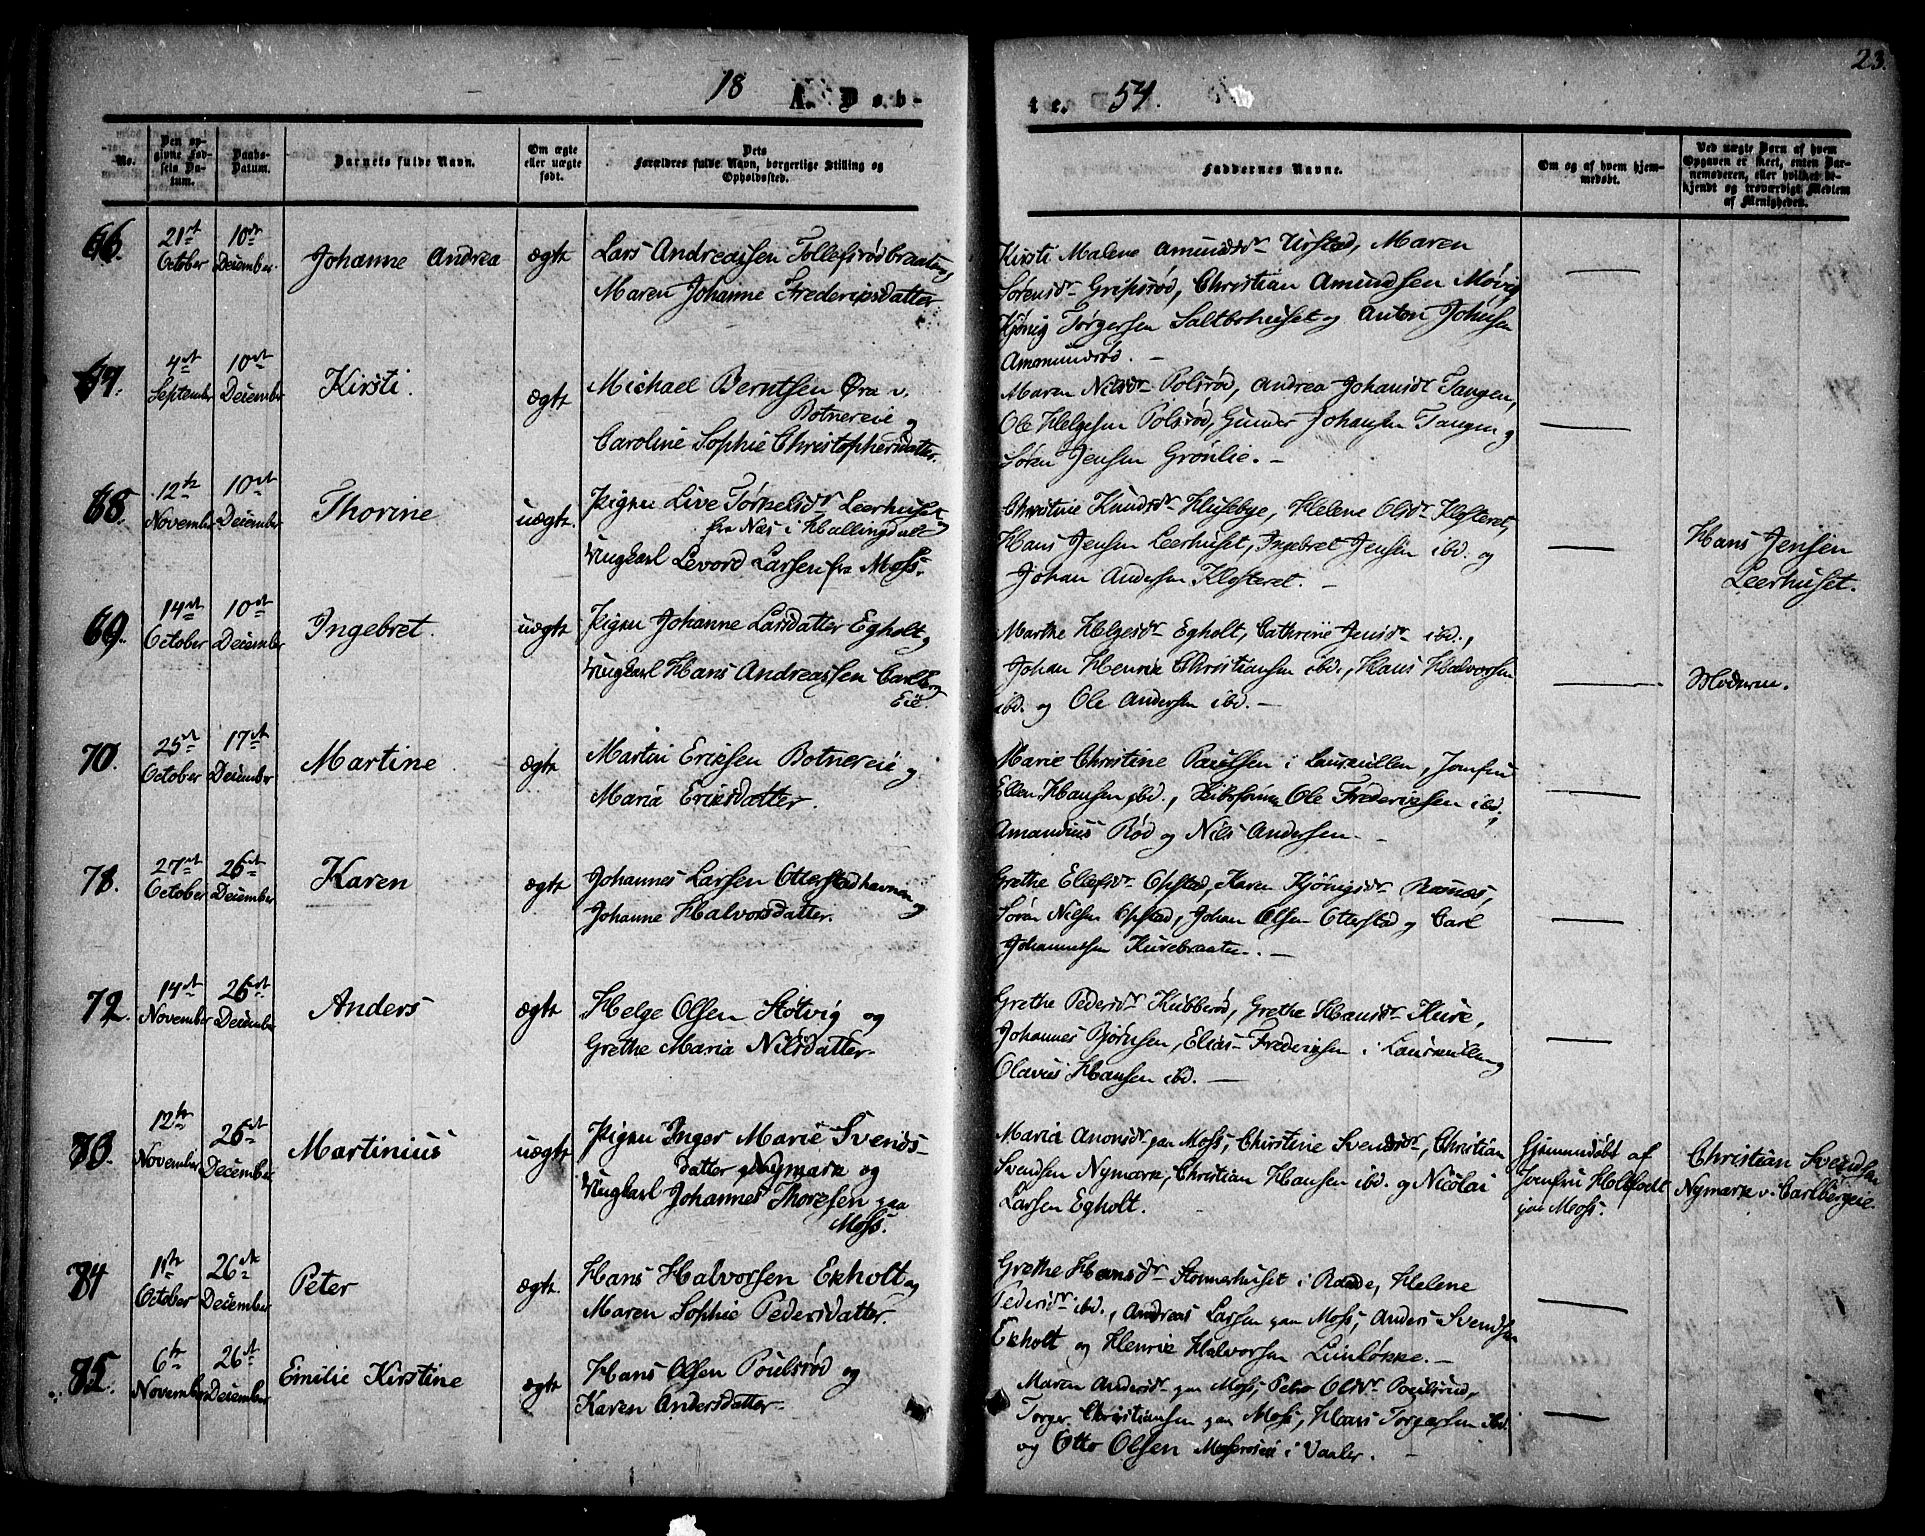 23.
18 A. Døb-
te. 54.
No.
Den opgivne Fødsels Datum.
Daabs-Datum.
Barnets fulde Navn.
Om ægte eller uægte født.
Dets Forældres fulde Navn, borgerlige Stilling og Opholdssted.
Faddernes Navne.
Om og af hvem hjemmedøbt.
Ved uægte Børn af hvem Opgaven er skeet, enten Barnemoderen, eller hvilket bekjendt og troværdigt Medlem af Menigheden.
66. 21de October 10de December. Johanne Andrea ægte
Lars Andreassen Tollefsrødbraaten,
Maren Johanne Frederiksdatter
Kirsti Malene Amundsdr Urstad, Maren
Sørensdr Gripsrød, Christian Amundsen Møvig
Kjønig Torgersen Saltbohuset og Anton Johnsen
Amomundrød. —
67. 4de September 10de December Kirsti. ægte
Michael Berntsen Øra v.
Botnereie og
Caroline Sophie Christophersdatter.
Maren Nilsdr Polsrød, Andrea Johansdr Tangen,
Ole Helgesen Polsrød, Gunder Johansen Tangen og
Søren Jensen Grønlie. —
68. 12te November 10de December Thorine uægte.
Pigen Live Torkelsdr Leerhuset
fra Næs i Hallingdal
Ungkarl Levord Larsen fra Moss.
Christine Knudsdr Husebye, Helene Olsdr Klosteret,
Hans Jensen Leerhuset, Ingebret Jensen ibd. og
Johan Andersen Klosteret. —
Hans Jensen
Leerhuset.
69. 14de October 10de December Ingebret. uægte
Pigen Johanne Larsdatter Egholt og
Ungkarl Hans Andreassen Carlberg
Eie.
Marthe Helgesdr Egholt, Cathrine Jensdr ibd.,
Johan Henrik Christiansen ibd., Hans Halvorsen
ibd. og Ole Andersen ibd. —
Moderen.
70. 25de October 17de December Martine ægte
Martin Eriksen Botnereie og
Maria Eriksdatter.
Marie Christine Paulsen i Laurkullen, Jomfru
Ellen Hansen ibd., Ole Frederiksen ibd.,
Amandius Rød og Nils Andersen —
71. 27de October 26de December Karen ægte
Johannes Larsen Otterstadhavnen og
Johanne Halvorsdatter.
Grethe Elefsdr Opstad, Karen Kjønigsdr Ramnæs,
Søren Nilsen Opstad, Johan Olsen Otterstad og Carl
Johannessen Kurebraaten. —
72. 14de November 26de December Anders ægte
Helge Olsen Støtvig og
Grethe Maria Nilsdatter.
Grethe Pedersdr Kubberød, Grethe Hansdr Kure,
Johannes Bjørnsen, Elias Frederiksen i Laurkullen og
Olavus Hansen ibd. —
83. 12te November 26de December Martinius uægte
Pigen Inger Marie Svends-
datter Nymark og
Ungkarl Johannes Thoresen paa
Moss.
Maria Aronsdr paa Moss, Christine Svendsdr, Christian
Svendsen Nymark, Christian Hansen ibd. og Nicolai
Larsen Egholt.
Hjemmedøbt af
Jomfru Holtfodt
paa Moss.
Christian Svendsen
Nymark v. Carlbergeie.
84 1ste October 26de December Peter ægte.
Hans Halvorsen Ekholt og
Maren Sophie Pedersdatter.
Grethe Hansdr Stommerhuset i Raade, Helene
Pedersdr ibd., Andreas Larsen paa Moss, Anders Svendsen
Ekholt og Henrik Halvorsen Lunløkke. —
85. 6te November 26de December Emilie Kirstine ægte
Hans Olsen Poulsrød og
Karen Andersdatter.
Maren Andersdr paa Moss, Petra Olsdr Poulsrud,
Torger Christiansen paa Moss, Hans Torgersen ibd.
og Otto Olsen Mosseroseie i Vaaler. —